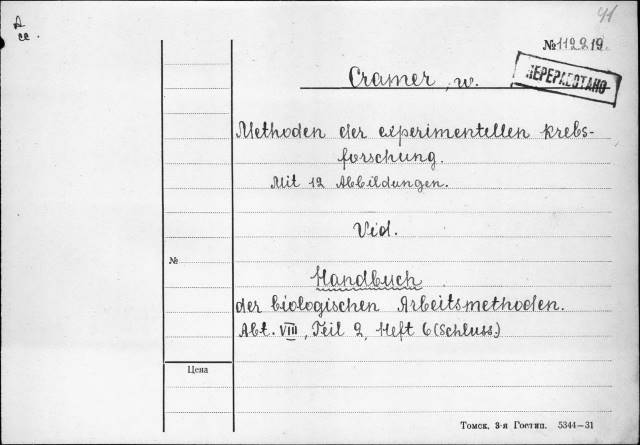 41
№112219.
ПЕРЕРАБОТАНО
Cramer, W.
Methoden der experimentellen Krebs-
forschung.
Mit 12 Abbildungen.
Vid.
№
Handbuch
der biologischen Arbeitsmethoden.
Abt. VIII, Teil 2, Heft 6 (Schluss)
Цена
Томск, 3-я Гостип. 5344—31